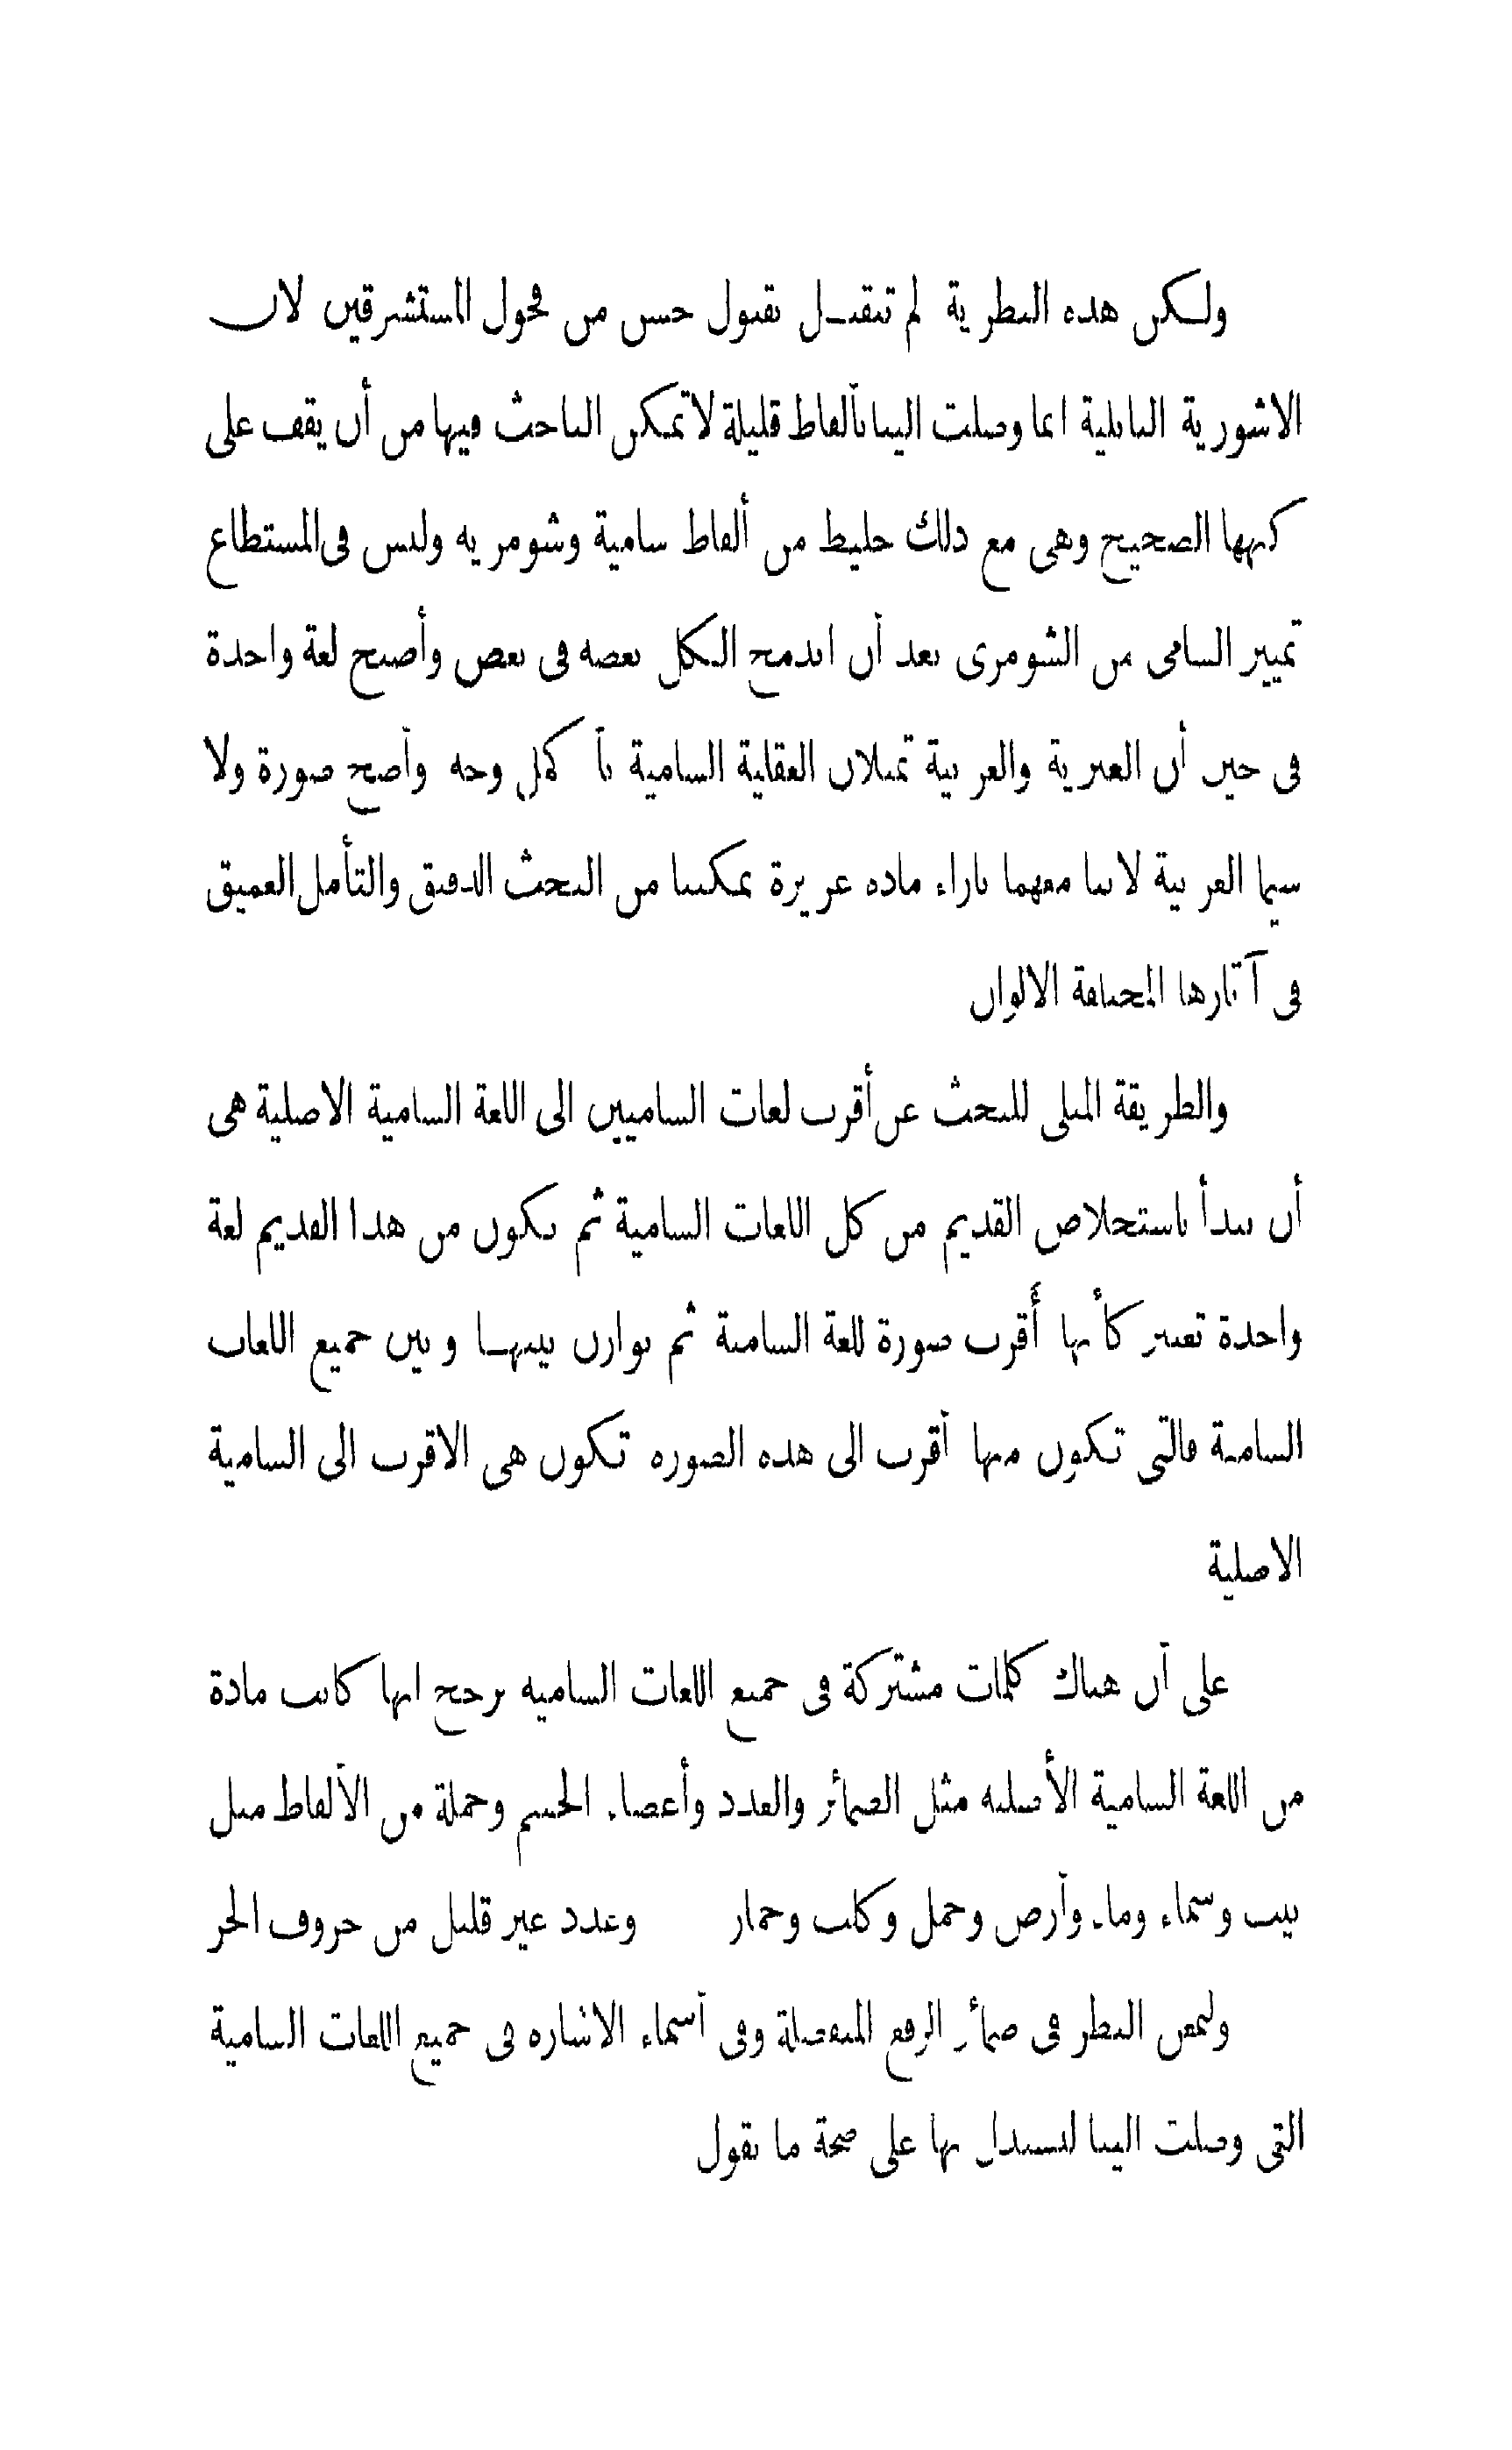 ولكن هذه النظرية لم تتقبل بقبول حسن من فحول المستشرقين لان
الاشورية البابلية انما وصلت الينا بألفاظ قليلة لا تمكن الباحث فيها من أن يقف على
كنهها الصحيح وهى مع ذلك خليط من ألفاظ سامية وشومرية وليس فى المستطاع
تمييز السامى من الشومرى بعد أن اندمج الكل بعضه فى بعض وأصبح لغة واحدة
فى حين أن العبرية والعربية تمثلان العقلية السامية بأكمل وجه وأصح صورة ولا
سيما العربية لاننا معهما بازاء مادة غزيرة تمكننا من البحث الدقيق والتأمل العميق
فى آثارها المختلفة الالوان
والطريقة المثلى للبحث عن أقرب لغات الساميين الى اللغة السامية الاصلية هى
أن نبدأ باستخلاص القديم من كل اللغات السامية ثم نكون من هذا القديم لغة
واحدة تعتبر كأنها أقرب صورة للغة السامية ثم نوازن بينها وبين جميع اللغات
السامية فالتى تكون منها أقرب الى هذه الصورة تكون هى الاقرب الى السامية
الاصلية
على أن هناك كلمات مشتركة فى جميع اللغات السامية نرجح انها كانت مادة
من اللغة السامية الأصلية مثل الضمائر والعدد وأعضاء الجسم وجملة من الألفاظ مثل
بيت وسماء وماء وأرض وجمل وكلب وحمار وعدد غير قليل من حروف الجر
ولنمعن النظر فى ضمائر الرفع المنفصلة وفى أسماء الاشارة فى جميع اللغات السامية
التى وصلت الينا لنستدل بها على صحة ما نقول